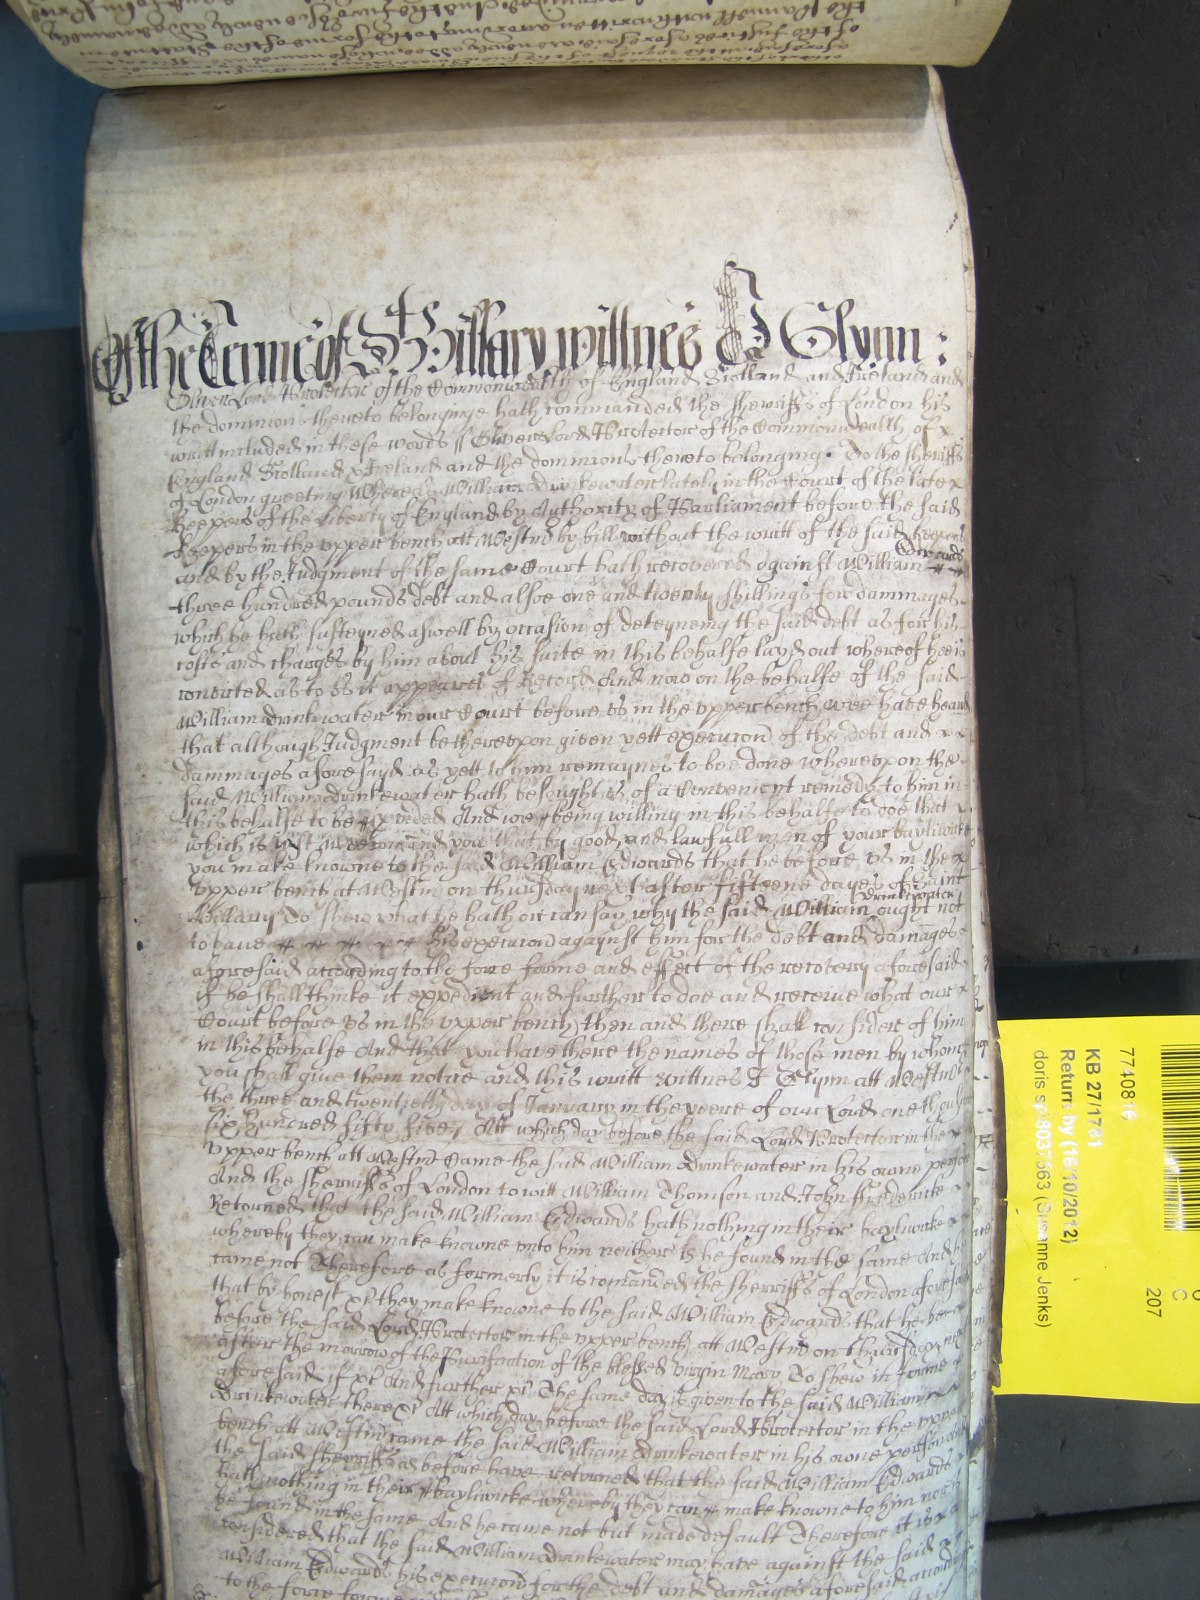 Of the Terme of St Hillary wittnes J Glynn :
Oliver Lord Protector of the Commonwealth of England Scotland and Ireland and
the dominions thereto belonginge hath commanded the Sherriffs of London his
writt included in these words ss Oliver Lord Protector of the Commonwealth of x
England Scotland x Ireland and the dominions thereto belonging. To the Sheriffs
of London greeting Whereas William Drinkewater lately in the Court of the late x
Keepers of the liberty of England by Authority of Parliament before the said
Keepers in the upper bench att Westmr by bill without the writt of the said Keepers
and by the Judgment of the same Court hath recovered against William Edwards
three hundred pounds debt and alsoe one and twenty shillings for dammages
which he hath susteyned aswell by occasion of deteyneing the said debt as for his
costs and charges by him about his suite in this behalfe layd out whereof hee is
convicted as to us it appeares of Record And now on the behalfe of the said
William Drinkewater in our Court before us in the upper bench wee have heard
that although Judgment be thereupon given yett execucon of the debt and x x
dammages aforesayd as yett to him remaynes to bee done whereupon the
said William Drinkewater hath besought us of a convenient remedy to him in
this behalfe to be provided And wee being willing in this behalfe to doe that
which is just Wee comand you that by good and lawfull men of your bayliwicke
you make knowne to the said William Edwards that he be fore us in the x
upper bench at Westmr on thursday next after fifteene dayes of Saint
Hillary To shew what he hath or can say why the said William Drinkewater ought not
to have his execucon against him for the debt and damages
aforesaid according to the force forme and effect of the recovery aforesaid
if he shall thinke it expedient and further to doe and receive what our x
Court before us in the upper bench then and there shall consider of him
in this behalfe And that you have there the names of those men by whom
you shall give them notice and this writt Wittnes J Glynn att Westmr
the three and twentieth day of January in the yeere of our Lord one thousand
six hundred fifty five Att which day before the said Lord Protector in the x
upper bench att Westmr Came the said William Drinkewater in his owne person
And the sherriffs of London to witt William Thomson and John Frederick
Retorned that the said William Edwards hath nothing in their bayliwicke x
whereby they can make knowne unto him neither is he found in the same And he
came not Therefore as formerly it is comanded the sherriffs of London aforesaid
that by honest xc they make knowne to the said William Edwards that he be
before the said Lord Protector in the upper bench att Westmr on thursday next
after the morrow of the Purification of the blessed Virgin Mary To shew in forme
aforesaid if xc And further xc The same day is given to the said William
Drinkewater there xc Att which day before the said Lord Protector in the upper
bench att Westmr came the said William Drinkewater in his owne person And
the said Sherriffs as before have retorned that the said William Edwards
hath nothing in their bayliwicke whereby they can make knowne to him nor is
he found in the same And he came not but made default Therefore it is x
considered that the said William Drinkewater may have against the said
William Edwards his execucon for the debt and damages aforesaid according
to the force forme
7740816
KB 27/1781
Return by (16/10/2012)
doris sp8037563 (Susanne Jenks)
207